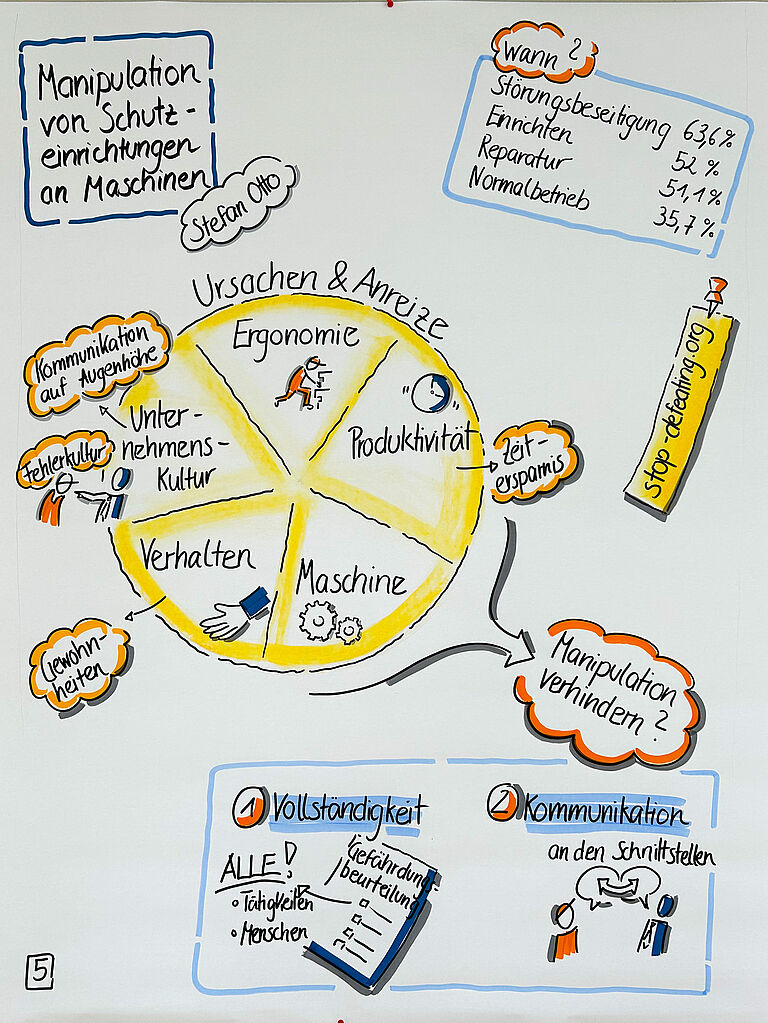 Manipulation
von Schutz-
einrichtungen
an Maschinen
Stefan Otto
Wann?
Störungsbeseitigung 63,6%
Einrichten 52 %
Reparatur 51,1%
Normalbetrieb 35,7 %
stop-defeating.org
Ursachen & Anreize
Ergonomie
Produktivität
Zeit-
ersparnis
Maschine
Verhalten
Gewohn-
heiten
Unter-
nehmens-
Kultur
Kommunikation
auf Augenhöhe
Fehlerkultur
Manipulation
verhindern?
1 Vollständigkeit
ALLE!
• Tätigkeiten
• Menschen
Gefährdung
beurteilung
2 Kommunikation
an den Schnittstellen
5